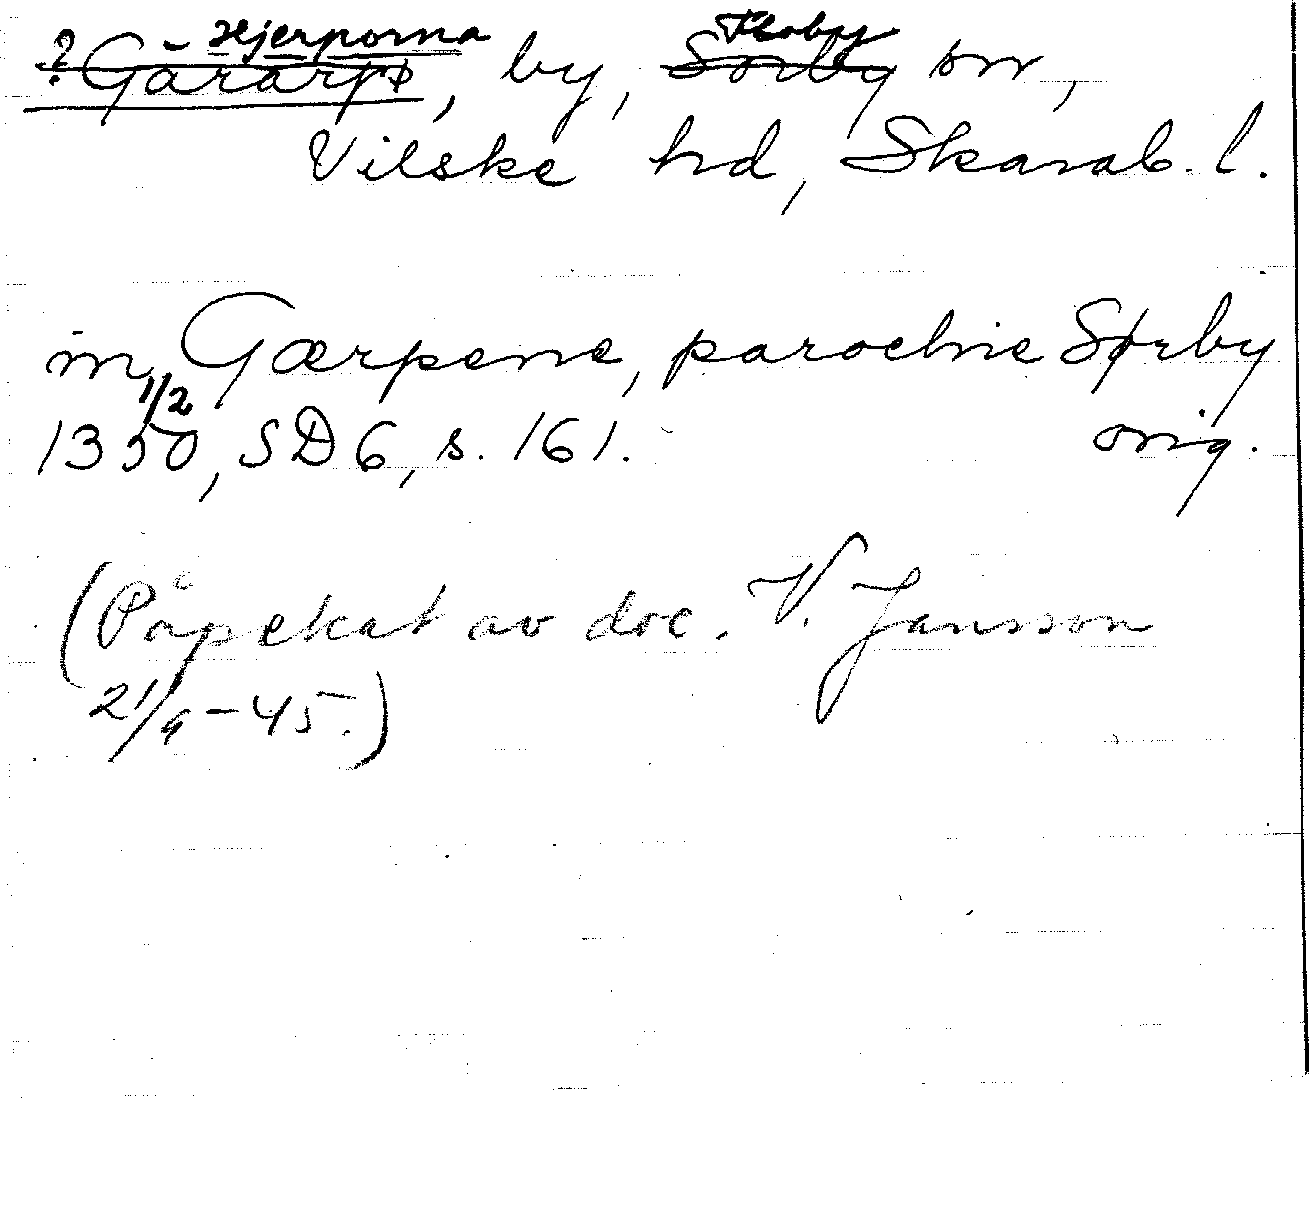 Hjerporna Floby
? Gårarp, by, Sörby sn,
Vilske hd, Skarab. l.
in Gærpene, parochie Sørby
1/2
1350, SD 6, s. 161. orig.
(Påpekat av doc. V. Jansson
21/9-45.)